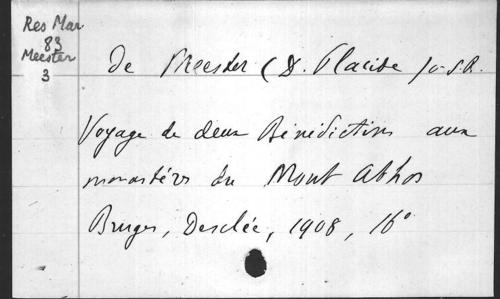 Res Mar
83
Meester
3
De Meester (D. Placide) o.s.B.
Voyage de deux Bénédictins aux
monastères du Mont Athos
Bruges, Desclée, 1908, 16°